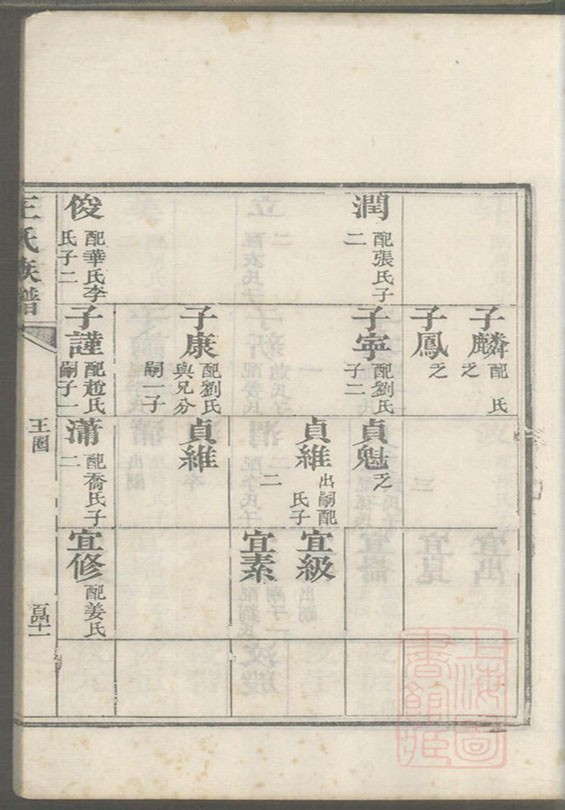 子麟 配 氏
乏
子鳳 乏
潤 配張氏子
二
子寧 配劉氏
子二
貞魁 乏
貞維 出嗣配
氏子
二
宜級
宜素
子康 配劉氏
與兄分
嗣一子
貞維
俊 配華氏李
氏子二
子謹 配趙氏
嗣子一
蒲 配喬氏子
二
宜修 配姜氏
王氏族譜
王圈
百四十一
上海圖
書館